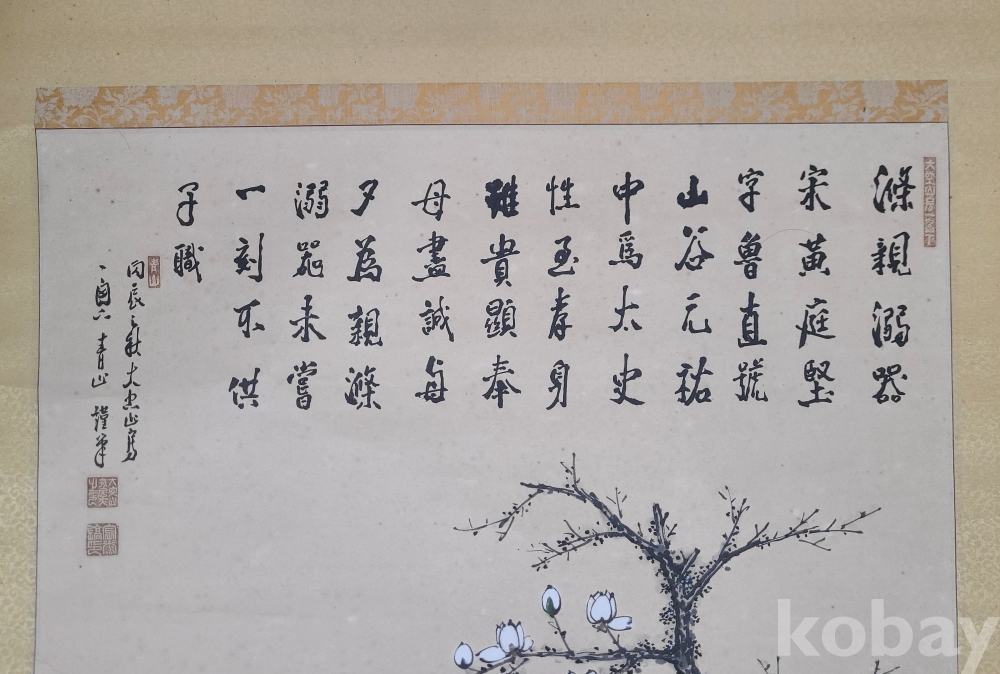 滌親溺器
宋黄庭堅
字魯直號
山谷元祐
中爲太史
性至孝身
雖貴顯奉
母盡誠每
夕為親滌
溺器未嘗
一刻不供
子職
青山
丙辰之秋
青山 謹筆
kobay